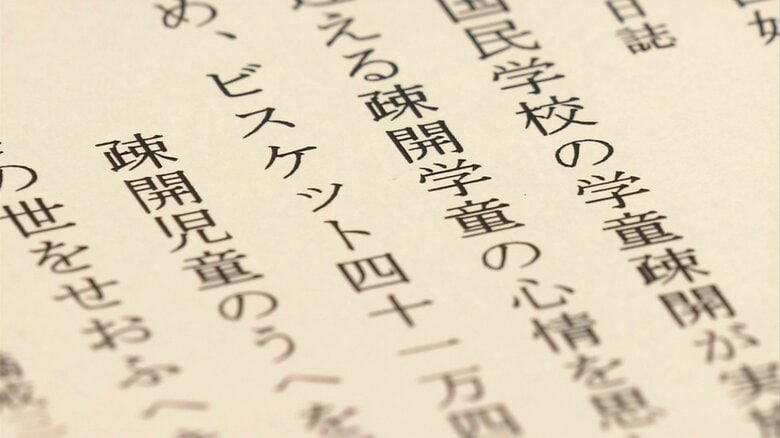 日誌
国民学校の学童疎開が実施
える疎開学童の心情を思
め、ビスケット四十一万四
疎開児童のうへを
の世をせおふべき